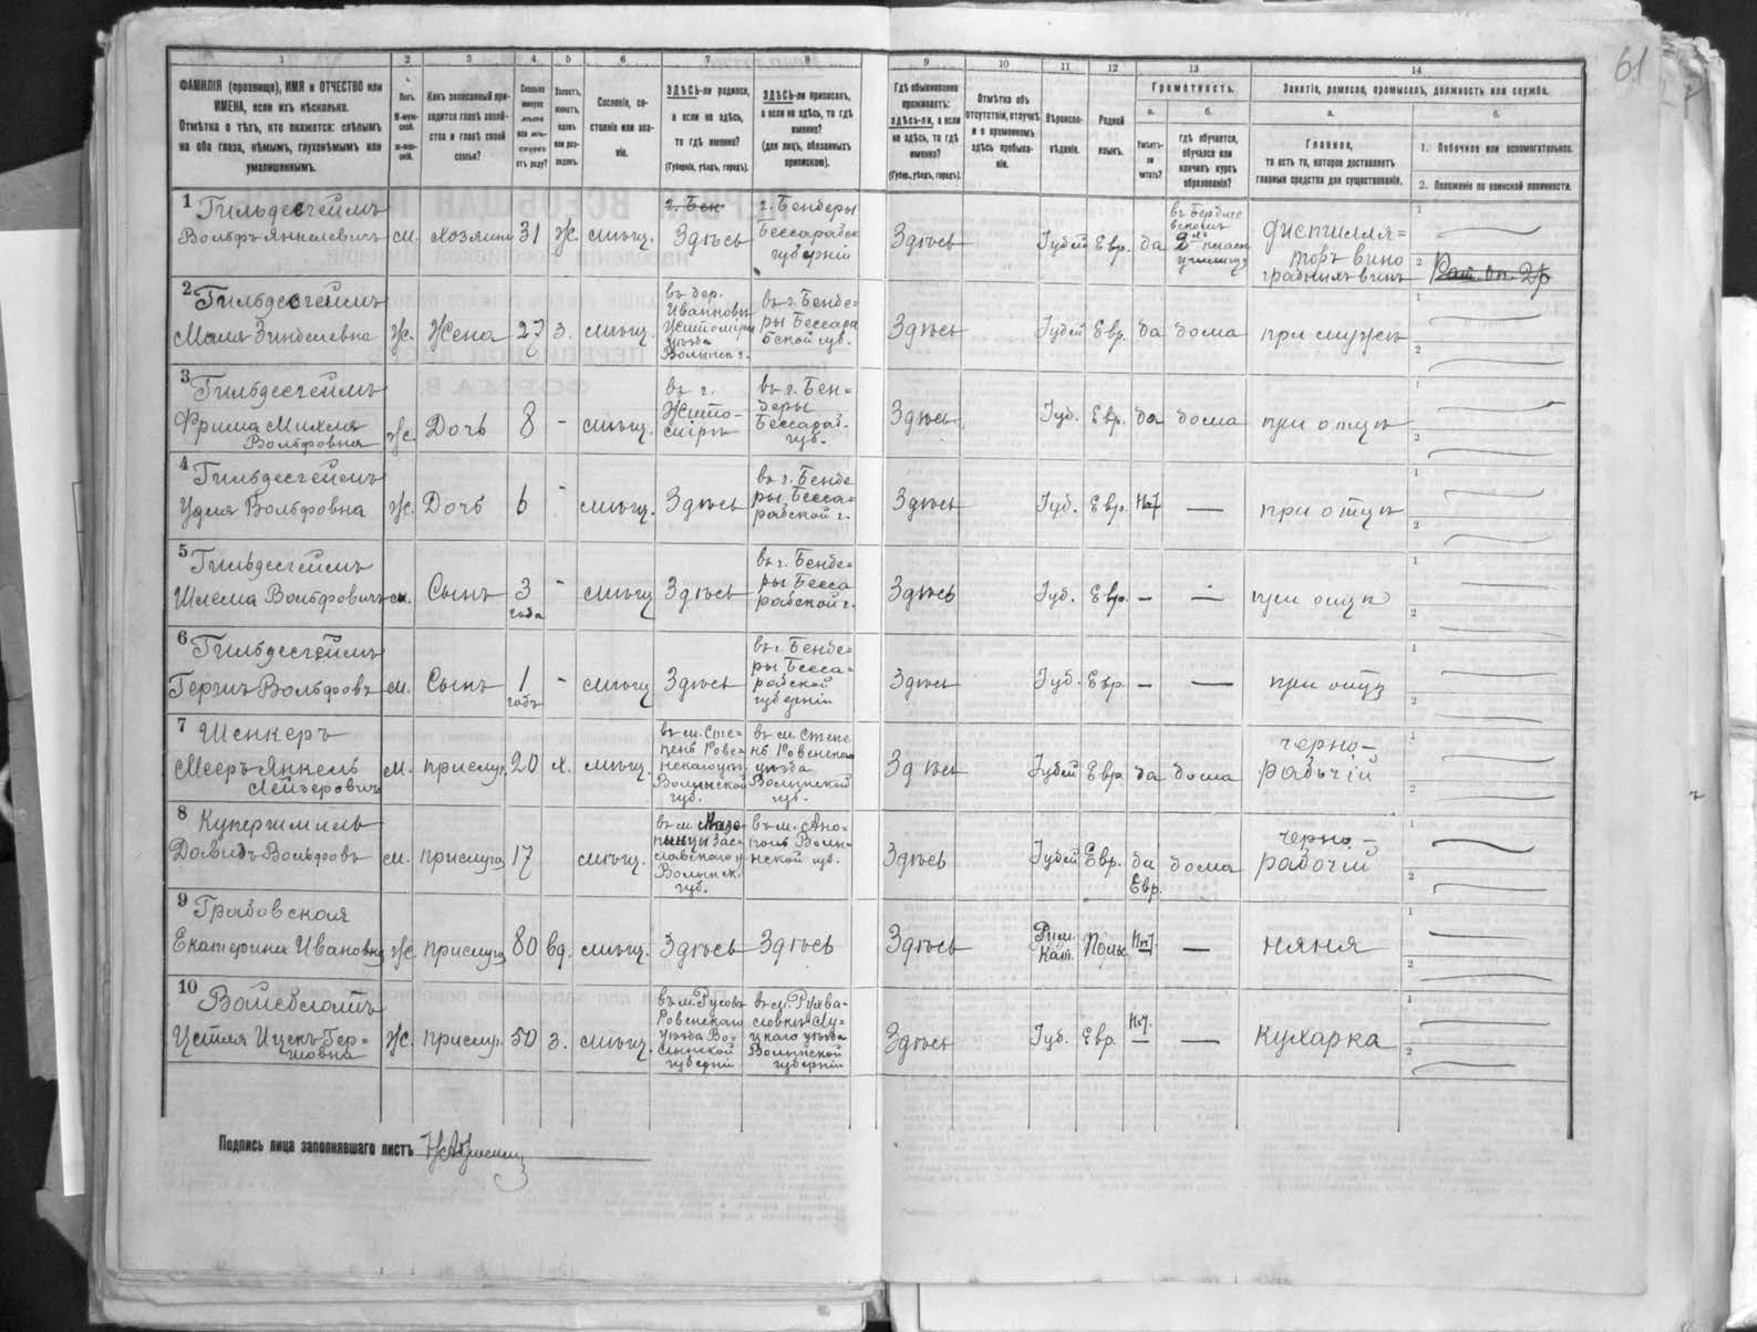 61
1 2 3 4 5 6 7 8 9 10 11 12 13 14
ФАМИЛІЯ (прозвище), ИМЯ и ОТЧЕСТВО или
ИМЕНА, если ихъ нѣсколько.
Отмѣтка о тѣхъ, кто окажется: слѣпымъ
на оба глаза, нѣмымъ, глухонѣмымъ или
умалишеннымъ.
Полъ.
М-муж-
ской.
Ж-жен-
скій.
Какъ записанный при-
ходится главѣ хозяй-
ства и главѣ своей
семьи?
Сколько
минуло
лѣтъ
отъ роду?
Холостъ,
женатъ,
вдовъ
или раз-
веденъ.
Сословіе, со-
стояніе или зва-
ніе.
ЗДѢСЬ-ли родился,
а если не здѣсь,
то гдѣ именно?
(Губернія, уѣздъ, городъ).
ЗДѢСЬ-ли приписанъ,
а если не здѣсь, то гдѣ
именно?
(для лицъ, обязанныхъ
припискою).
Гдѣ обыкновенно
проживаетъ:
здѣсь-ли, а если
не здѣсь, то гдѣ
именно?
(Губер., уѣздъ, городъ).
Отмѣтка объ
отсутствіи, отлучкѣ
и о временномъ
здѣсь пребыва-
ніи.
Вѣроиспо-
вѣданіе.
Родной
языкъ.
Грамотность.
а.
Умѣетъ-
ли
читать?
б.
гдѣ обучается,
обучался или
кончилъ курсъ
образованія?
Занятіе, ремесло, промыселъ, должность или служба.
а.
Главное,
то есть то, которое доставляетъ
главныя средства для существованія.
б.
1. Побочное или вспомогательное.
2. Положеніе по воинской повинности.
1 Гильдесгеймъ
Вольфъ Янкелевичъ м. хозяинъ 31 ж. мѣщ.
г. Бен
Здѣсь
г. Бендеры
Бессарабск
губерніи
Здѣсь Іудей Евр. да
въ Бердиче
училищѣ
дистилля=
торъ вино
градныхъ винъ
1
2
2 Гильдесгеймъ
Ж. Жена 27 з. мѣщ.
въ дер.
Ивановкѣ
Житомірск
уѣзда
Волынск г.
въ г. Бенде=
ры Бессара
бской губ.
Здѣсь Іудей Евр. да дома при мужѣ
1
2
3 Гильдесгеймъ
Фрима Михля
Вольфовна
Ж. Дочь 8 - мѣщ.
въ г.
Жито-
мірѣ
въ г. Бен=
деры
Бессараб.
губ.
Здѣсь Іуд. Евр. да дома при отцѣ
1
2
4 Гильдесгеймъ
Удля Вольфовна Ж. Дочь 6 - мѣщ. Здѣсь
въ г. Бенде
ры Бесса=
рабской г.
Здѣсь Іуд. Евр. Нѣт — при отцѣ
1
2
5 Гильдесгеймъ
Шлема Вольфовичъ м. Сынъ 3
года
- мѣщ Здѣсь
въ г. Бенде=
ры Бесса
рабской г.
Здѣсь Іуд. Евр. - — при отцѣ
1
2
6 Гильдесгеймъ
Гершъ Вольфовъ м. Сынъ 1
годъ
- мѣщ Здѣсь
въ г. Бенде=
ры Бесса=
рабской
губерніи
Здѣсь Іуд. Евр - — при отцѣ
1
2
7 Шенкеръ
Мееръ Янкель
Лейзеровичъ
м. прислуг. 20 х. мѣщ.
въ м. Сте=
пень Рове=
нскаго уѣз.
Волынской
губ.
въ м. Степе
нь Ровенска
уѣзда
Волынской
губ.
Здѣсь Іудей Евр да дома
черно-
рабочій
1
2
8 Купершмидъ
Давидъ Вольфовъ м. прислуга 17 мѣщ.
Зас=
лавскаго у
Волынск.
губ.
въ м. Ано=
поль Волы=
нской губ.
Здѣсь Іудей Евр. да
Евр.
дома
черно-
рабочій
1
2
9 Грабовская
Екатерина Ивановна Ж. прислуга 80 вд. мѣщ. Здѣсь Здѣсь
Здѣсь
Рим.
Кат.
Польс Нѣт. — няня
1
2
10
Цетля Ицекъ-Гер=
шовна
Ж. прислуг. 50 з. мѣщ.
Ровенскаго
уѣзда Во=
лынской
губерніи
Лу=
цкаго уѣзда
Волынской
губерніи
Здѣсь Іуд. Евр. Нѣт. — Кухарка
1
2
Подпись лица заполнявшаго листъ